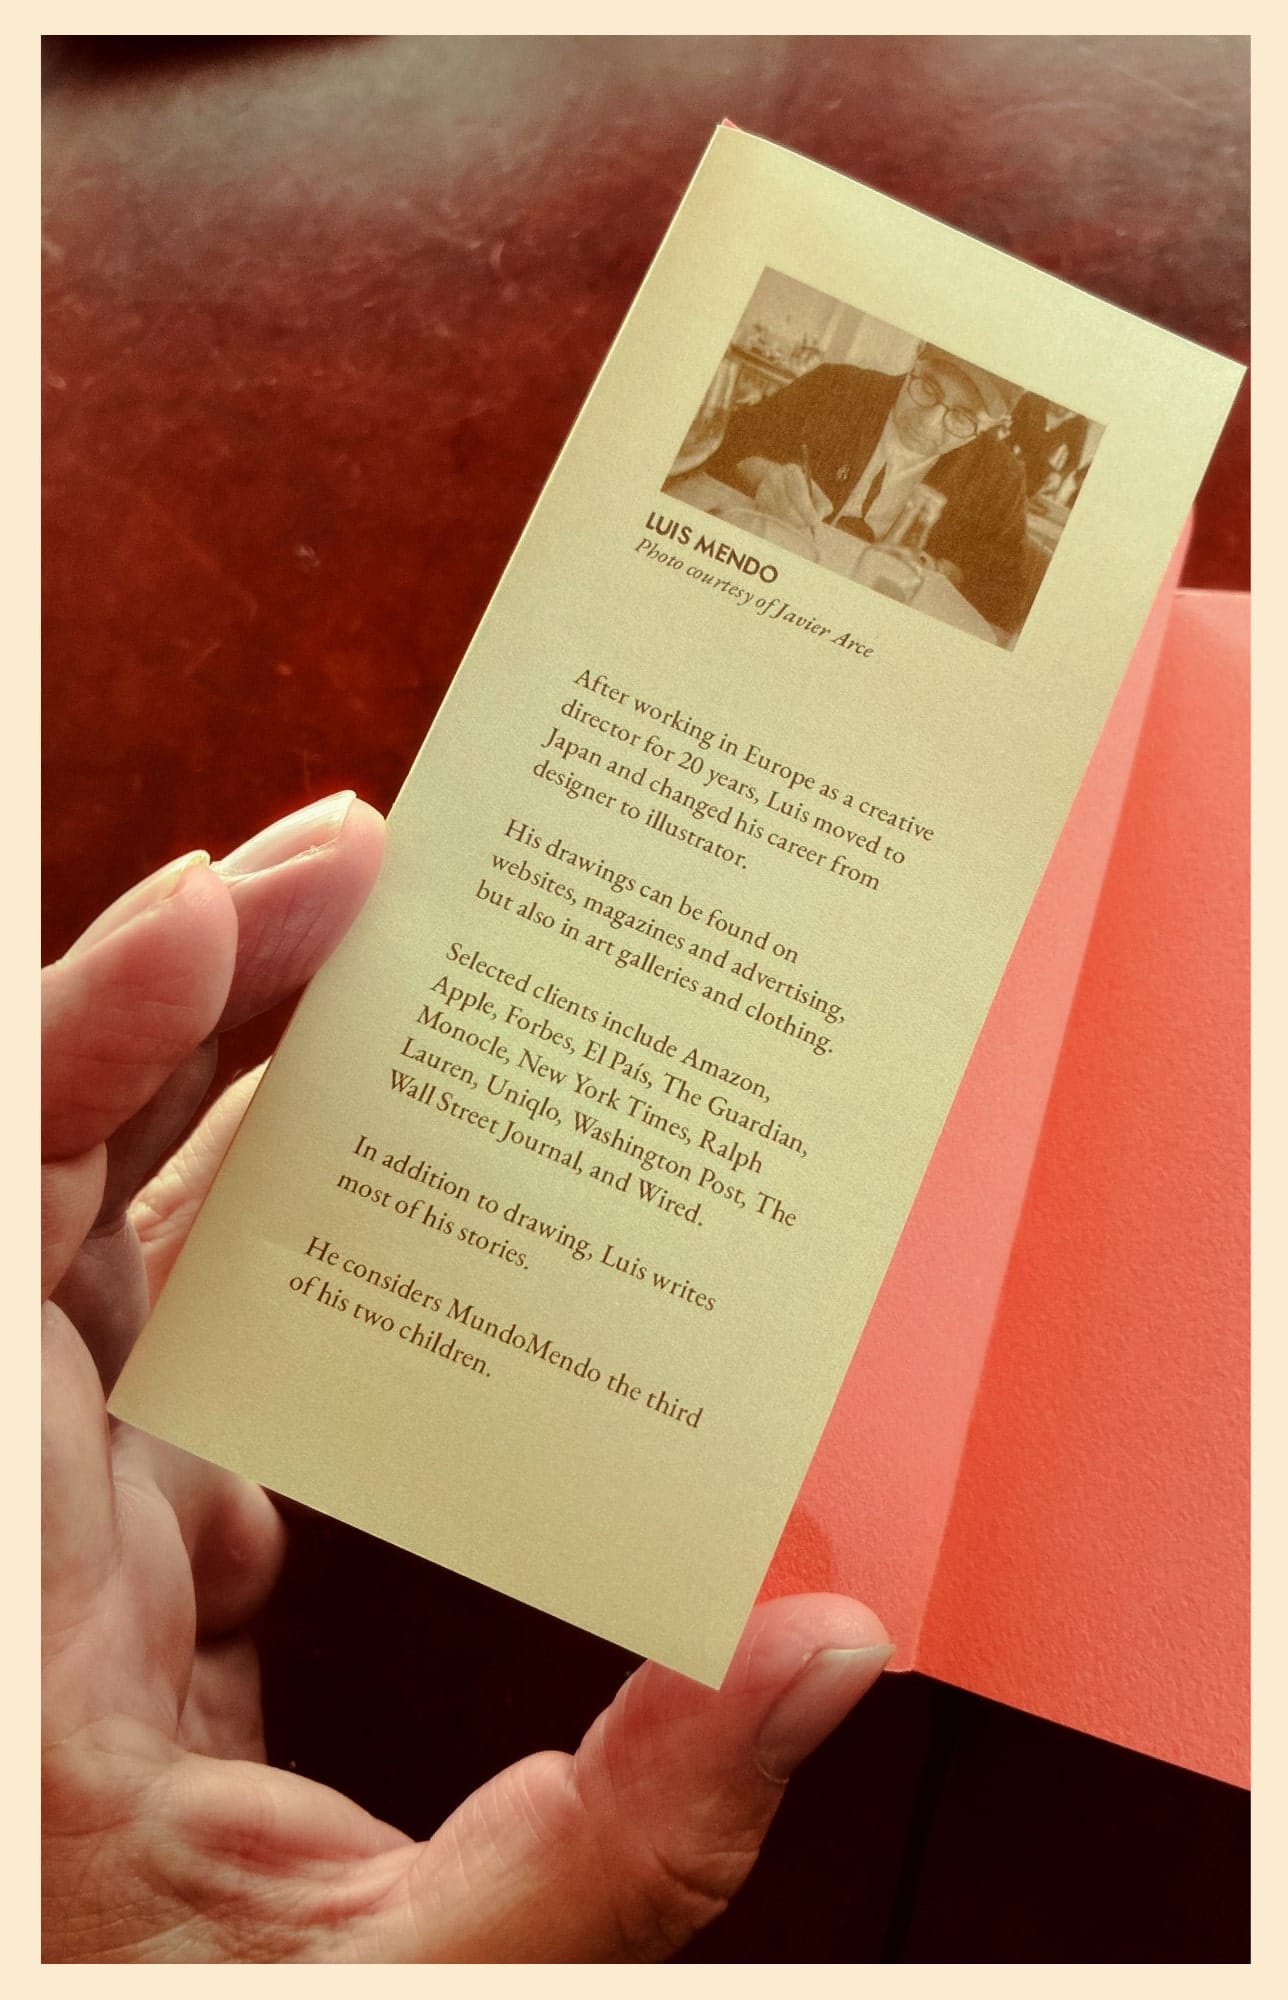 LUIS MENDO
Photo courtesy of Javier Arce
After working in Europe as a creative
director for 20 years, Luis moved to
Japan and changed his career from
designer to illustrator.
His drawings can be found on
websites, magazines and advertising,
but also in art galleries and clothing.
Selected clients include Amazon,
Apple, Forbes, El País, The Guardian,
Monocle, New York Times, Ralph
Lauren, Uniqlo, Washington Post, The
Wall Street Journal, and Wired.
In addition to drawing, Luis writes
most of his stories.
He considers MundoMendo the third
of his two children.